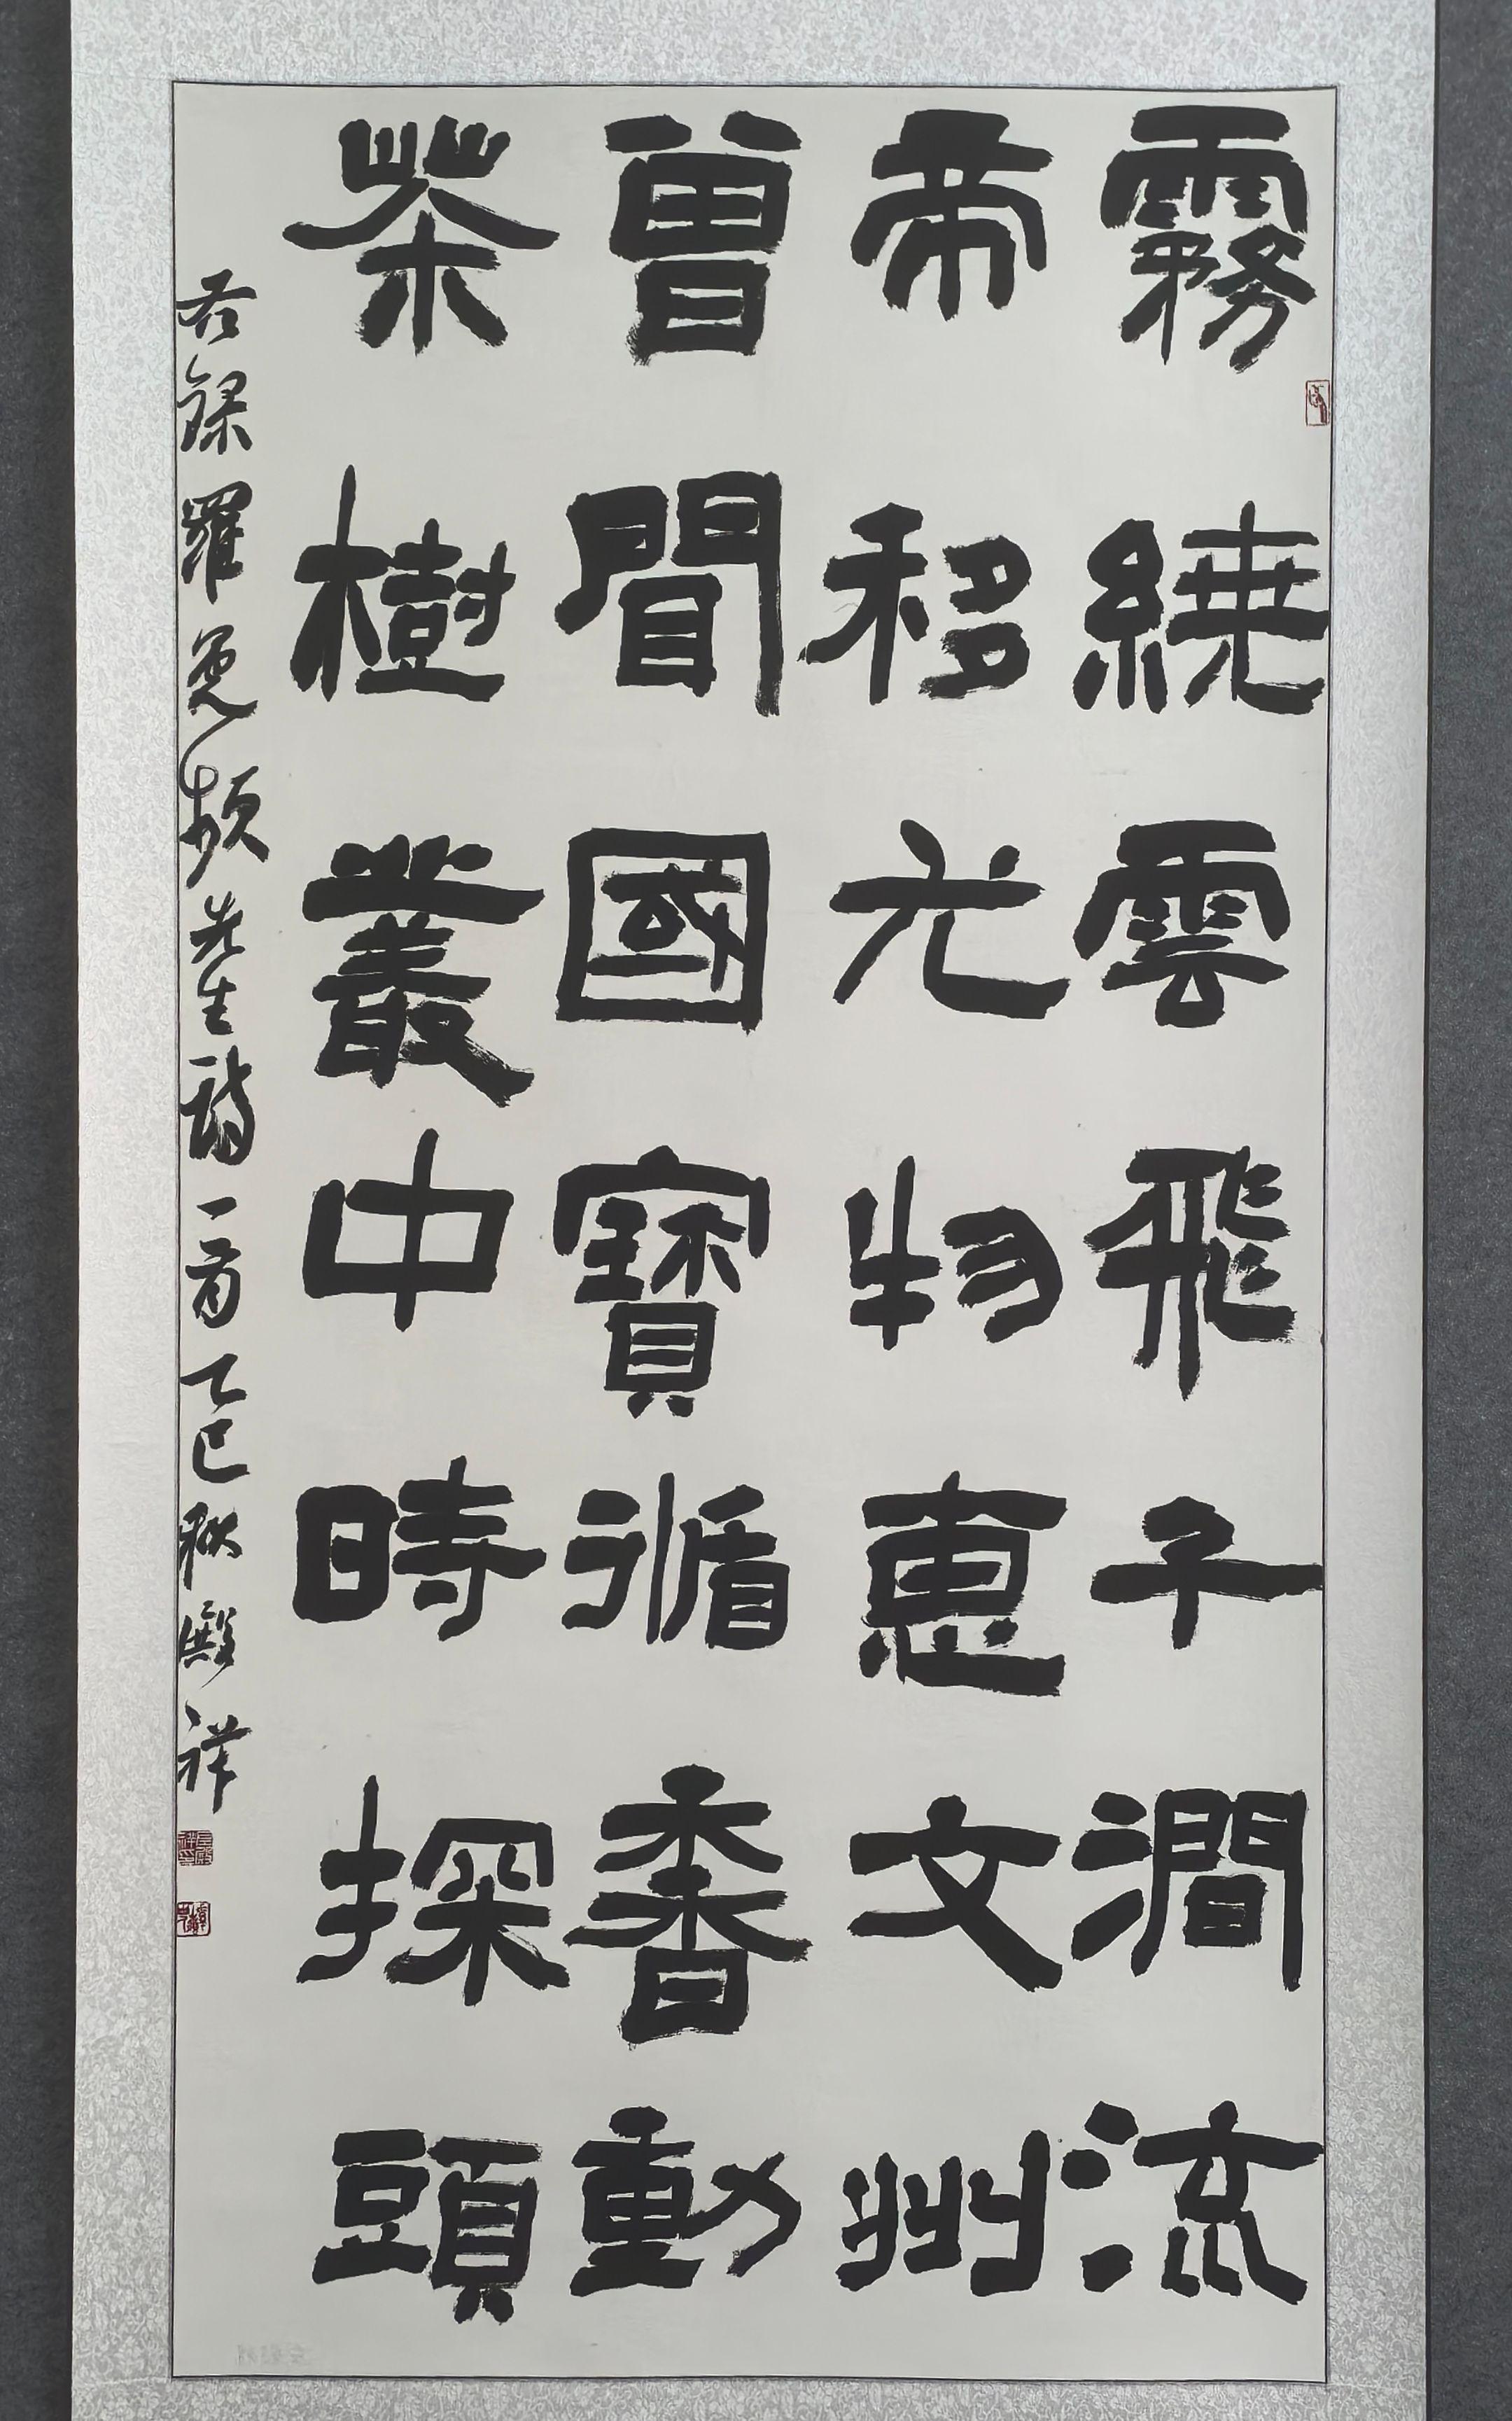 霧繞雲飛千澗流
帝移光物惠文州
曾聞國寶循香動
茶樹叢中時探頭
右錄羅先生詩一首乙巳秋殿祥